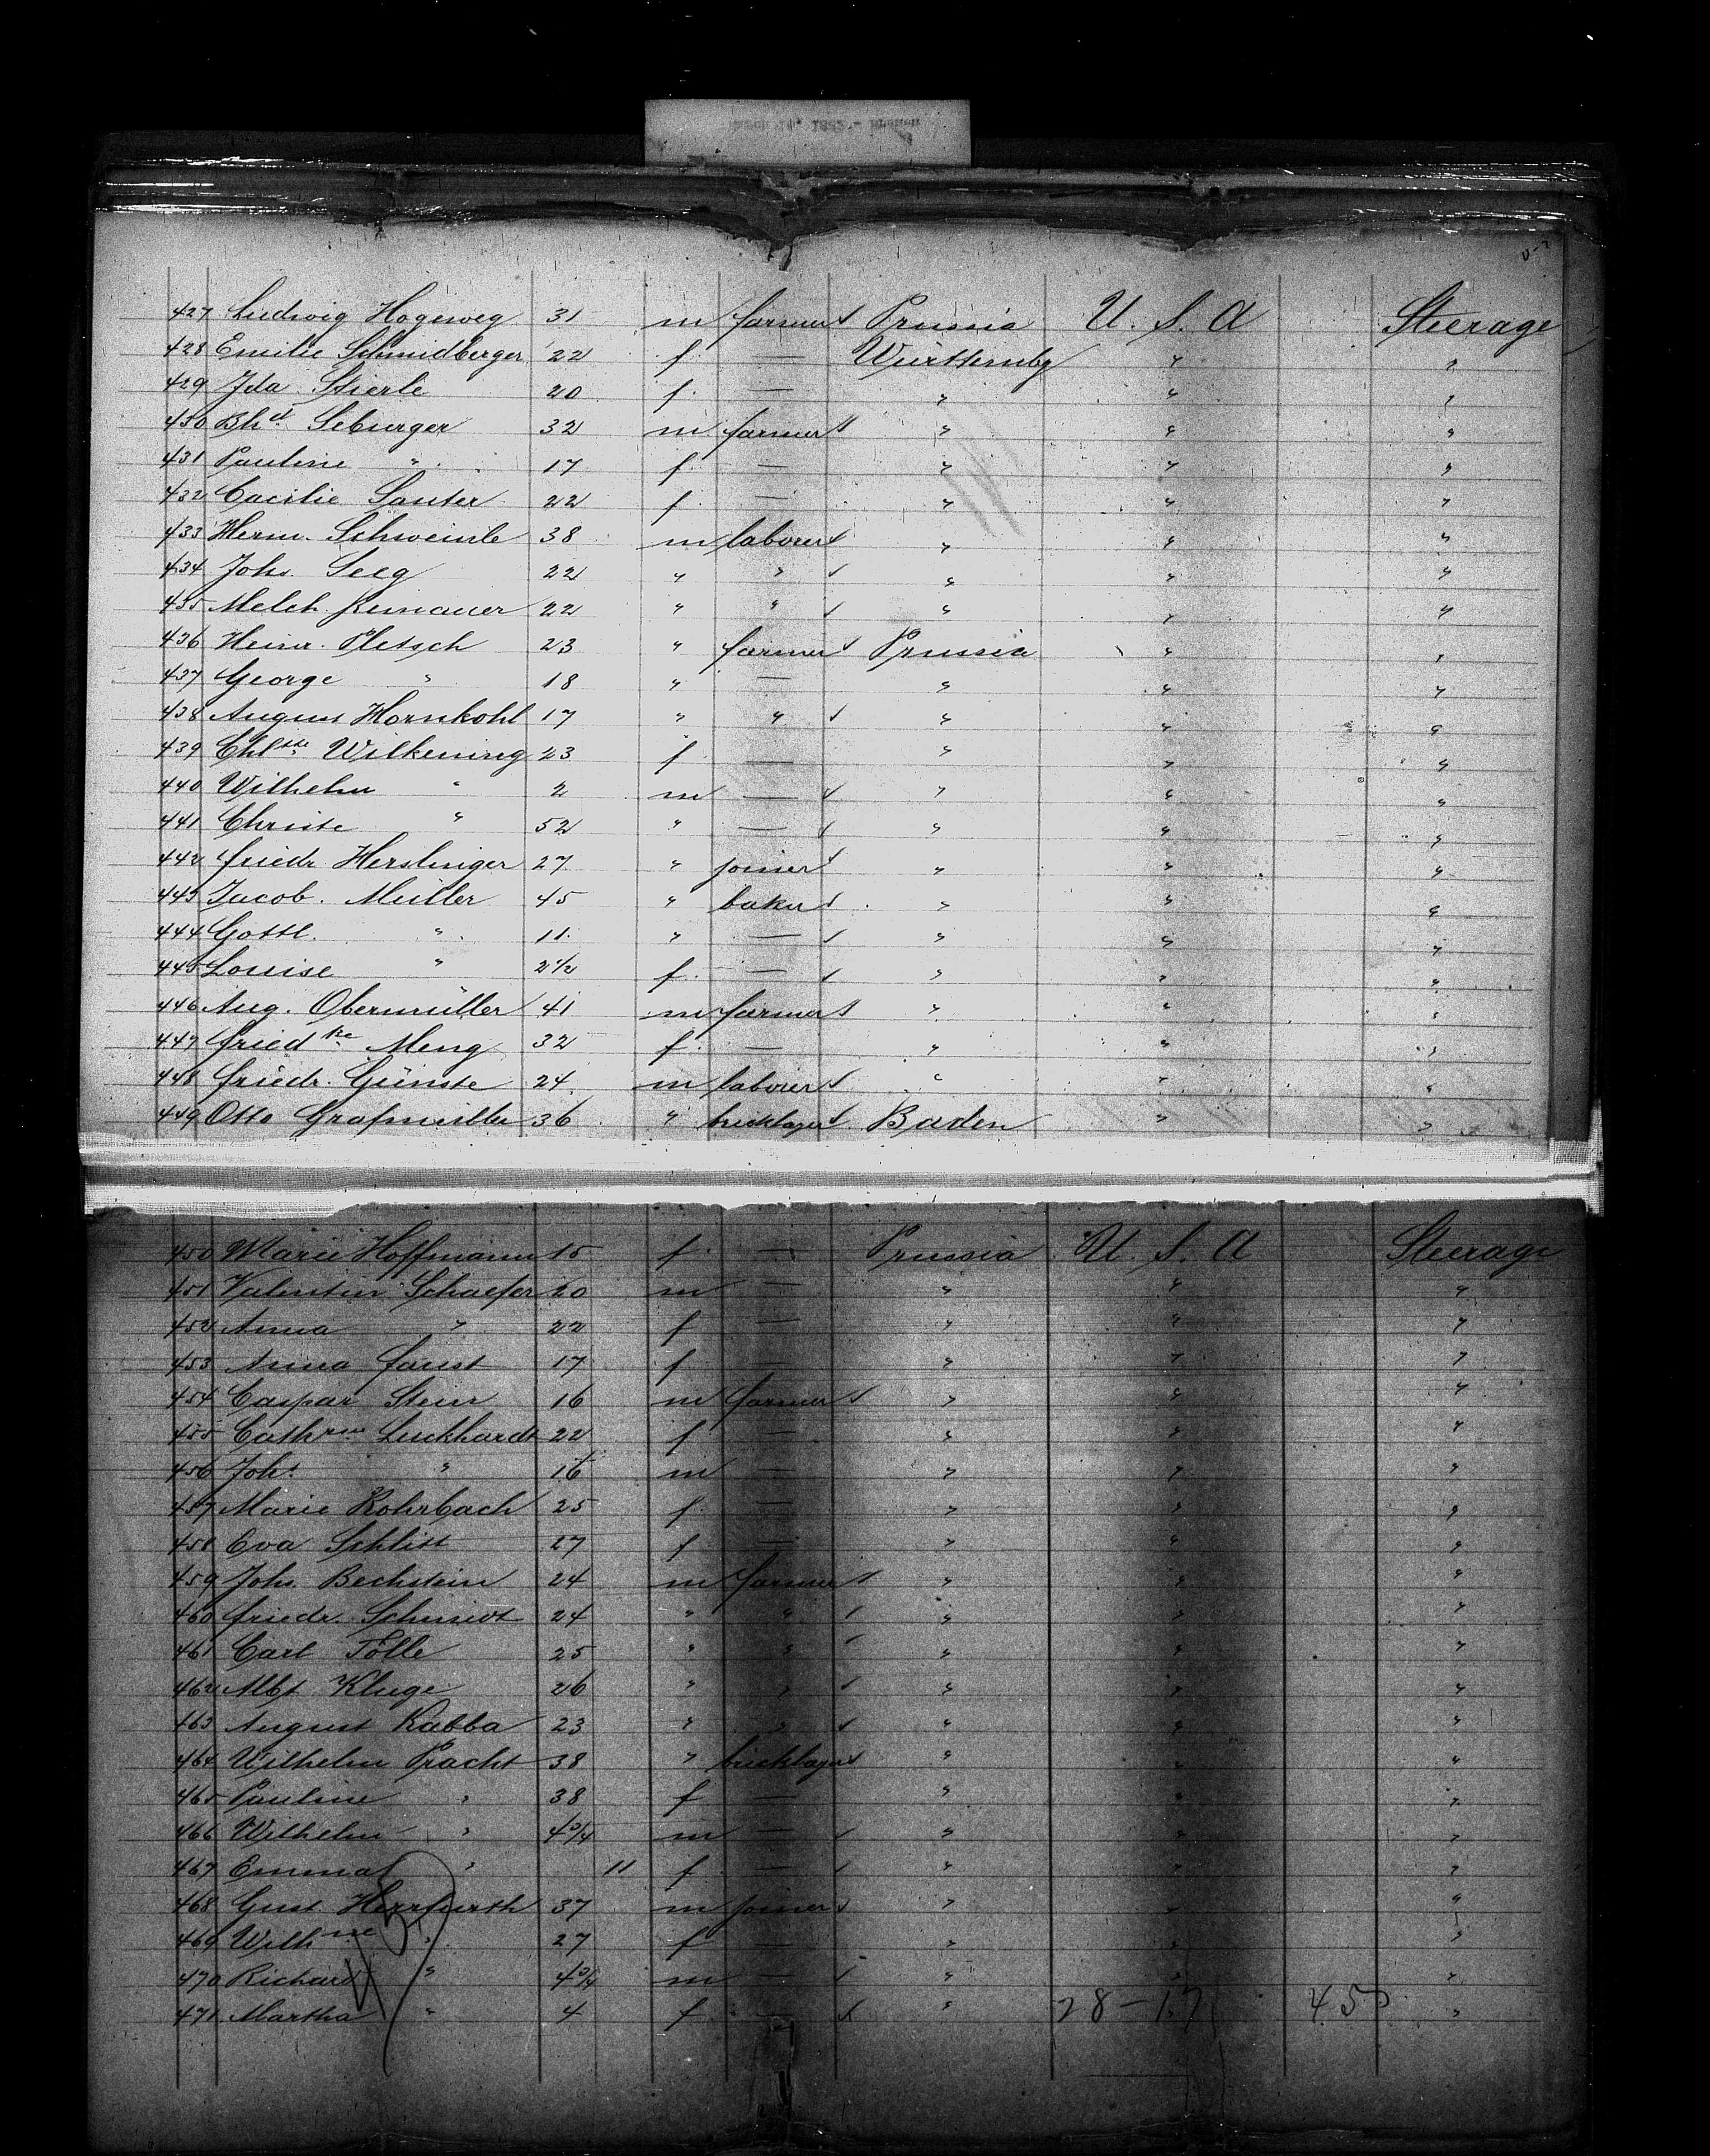 March 14, 1882 - Bremen
427 Ludwig Hogeweg 31 m farmer Prussia U. S. A Steerage
428 Emilie Schmidberger 22 f. — Württembg " "
429 Ida Stierle 20 f. — " " "
430 Bhd Seburger 32 m farmer " " "
431 Pauline " 17 f. — " " "
432 Cacilie Sauter 22 f. — " " "
433 Herm. Schweinle 38 m laborer " " "
434 Joh. Seeg 22 " " " " "
435 Melch. 22 " " " " "
436 Heinr. Pletsch 23 " farmer Prussia " "
437 George " 18 " — " " "
438 August Hornkohl 17 " " " " "
439 Chltte Wilkening 23 f — " " "
440 Wilhelm " 2 m — " " "
441 Christe " 52 " — " " "
442 Friedr. Herslinger 27 " joiner " " "
443 Jacob. Müller 45 " baker " " "
444 Gottl. " 11 " — " " "
445 Louise " 2 1/2 f. — " " "
446 Aug. Obermüller 41 m farmer " " "
447 Friedke Meng 32 f. — " " "
448 Friedr. Günste 24 m laborer " " "
449 Otto Grafmüller 36 " bricklayer Baden " "
450 Marie Hoffmann 15 f. — Prussia U. S. A Steerage
451 Valentin Schaefer 20 m — " " "
452 Anna " 22 f — " " "
453 Anna Faust 17 f — " " "
454 Caspar Stein 16 m farmer " " "
455 Cathrine Luckhardt 22 f — " " "
456 Johs " 16 m — " " "
457 Marie Rohrbach 25 f. — " " "
458 Eva Schlitt 27 f — " " "
459 Joh. Bechstein 24 m farmer " " "
460 Friedr. Schmidt 24 " " " " "
461 Carl Tölle 25 " " " " "
462 Albt Kluge 26 " " " " "
463 August Kabba 23 " " " " "
464 Wilhelm Pracht 38 " bricklayer " " "
465 Pauline " 38 f — " " "
466 Wilhelm " 4 3/4 m — " " "
467 Emma " 11 f — " " "
468 Gust. Herrfurth 37 m joiner " " "
469 Wilhne " 27 f — " " "
470 Richard " 4 3/4 m — " " "
471 Martha " 4 f. — " 28-17 45 "